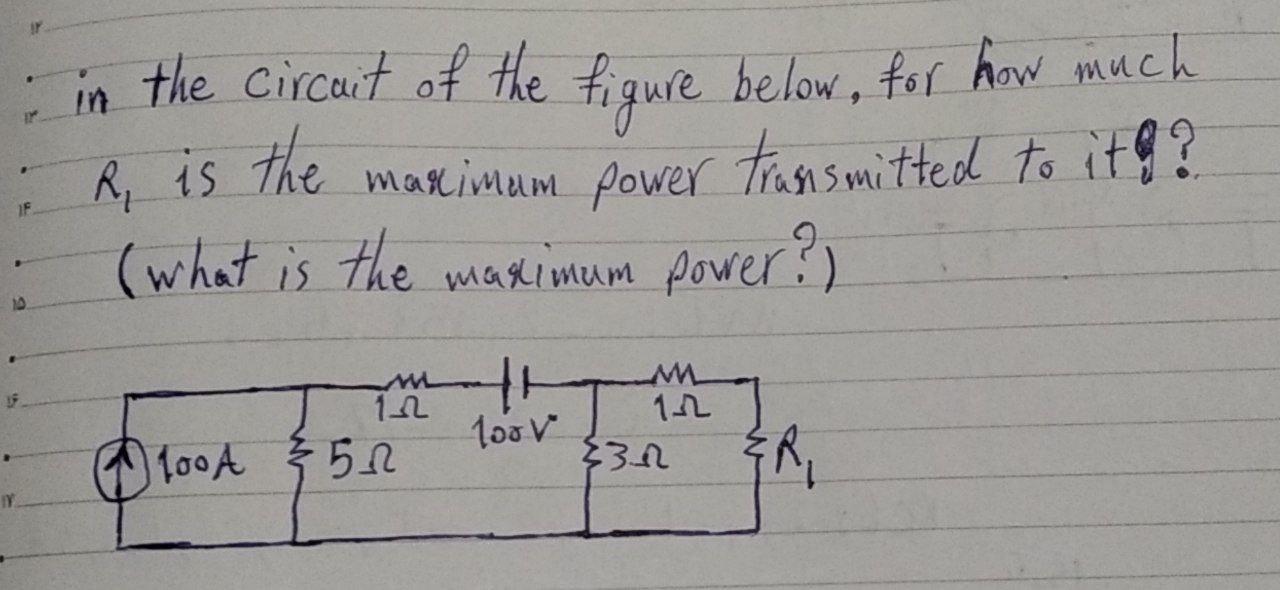 in the circuit of the figure below, for how much
R₁ is the maximum power transmitted to it?
(what is the maximum power?)
1Ω 100V 1Ω
100A 5Ω 3Ω R₁